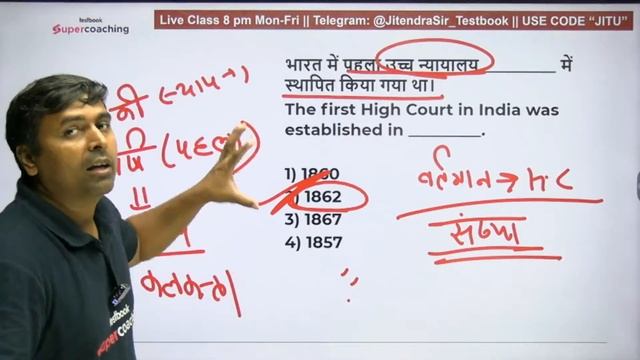 testbook
Supercoaching
Live Class 8 pm Mon-Fri || Telegram: @JitendraSir_Testbook || USE CODE “JITU”
भारत में पहला उच्च न्यायालय __________ में
स्थापित किया गया था।
The first High Court in India was
established in ________.
1) 1860
2) 1862
3) 1867
4) 1857
(पहला)
कलकत्ता
वर्तमान → HC
संख्या
testbook
Supercoaching